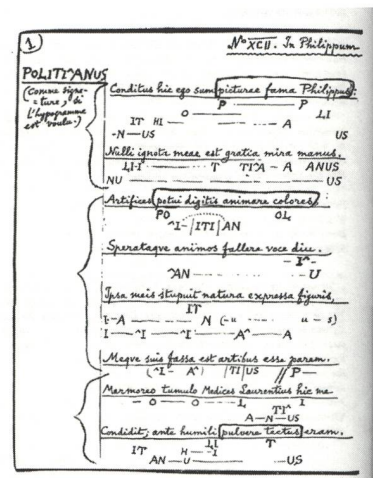 1
No XCII. In Philippum
POLITIANUS
(Comme signa=
=ture, si
l'hypogramme
est voulu.)
Conditus hic ego sum picturae fama Philippus:
P — P
O — LI
IT HI — A
-N-US US
Nulli ignota meae est gratia mira manus.
LI-I T TI^A — A ANUS
NU — US
Artifices potui digitis animare colores
PO OL
^I-|ITI|AN
Sperataque animos fallere voce diu.
-I^-
^AN — U
Ipsa meis stupuit natura expressa figuris,
IT
I-A — N (-u — u-s)
I — ^I — ^I — A^ — A
Meque suis fassa est artibus esse parem.
(^I- A^) |TI|US // P—
Marmoreo tumulo Medices Laurentius hic me
— O — O — L I
TI^
A-N-US
Condidit; ante humili pulvere tectus eram.
IT H LI T
-I
AN — U — US